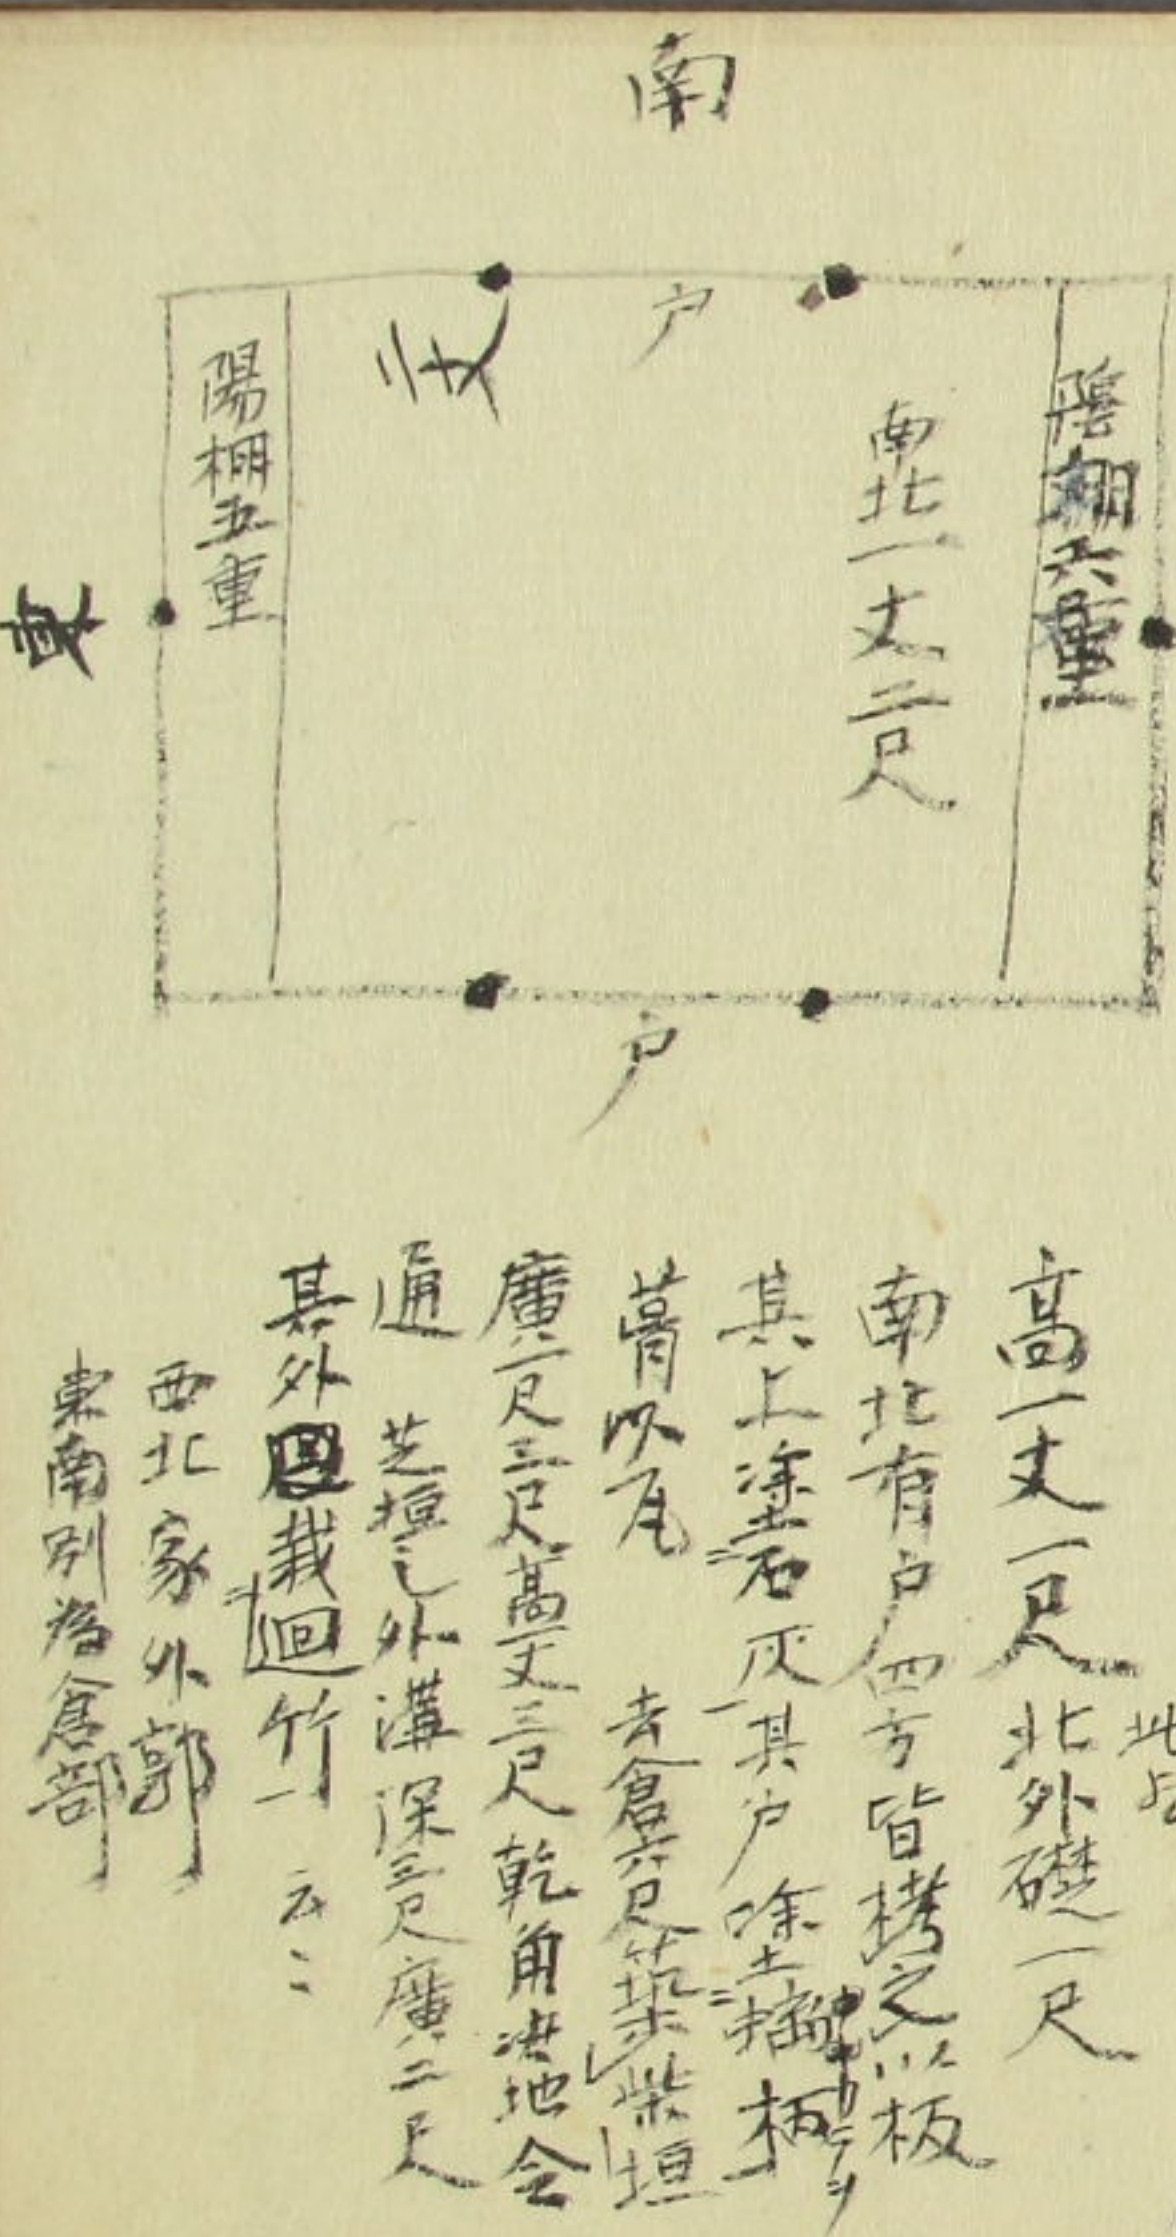 南
戸
陰棚六重
南北一丈二尺
陽棚五重
東
戸
高一丈一尺 北外礎一尺
南北有戸四方皆拷之以板
其上塗石灰其戸塗
葺以瓦 去倉六尺築柴垣
廣二尺三尺高一丈三尺乾角决地令
通 芝垣之外溝深三尺廣二尺
其外栽廻竹 云〻
西北家外郭
東南別為倉部